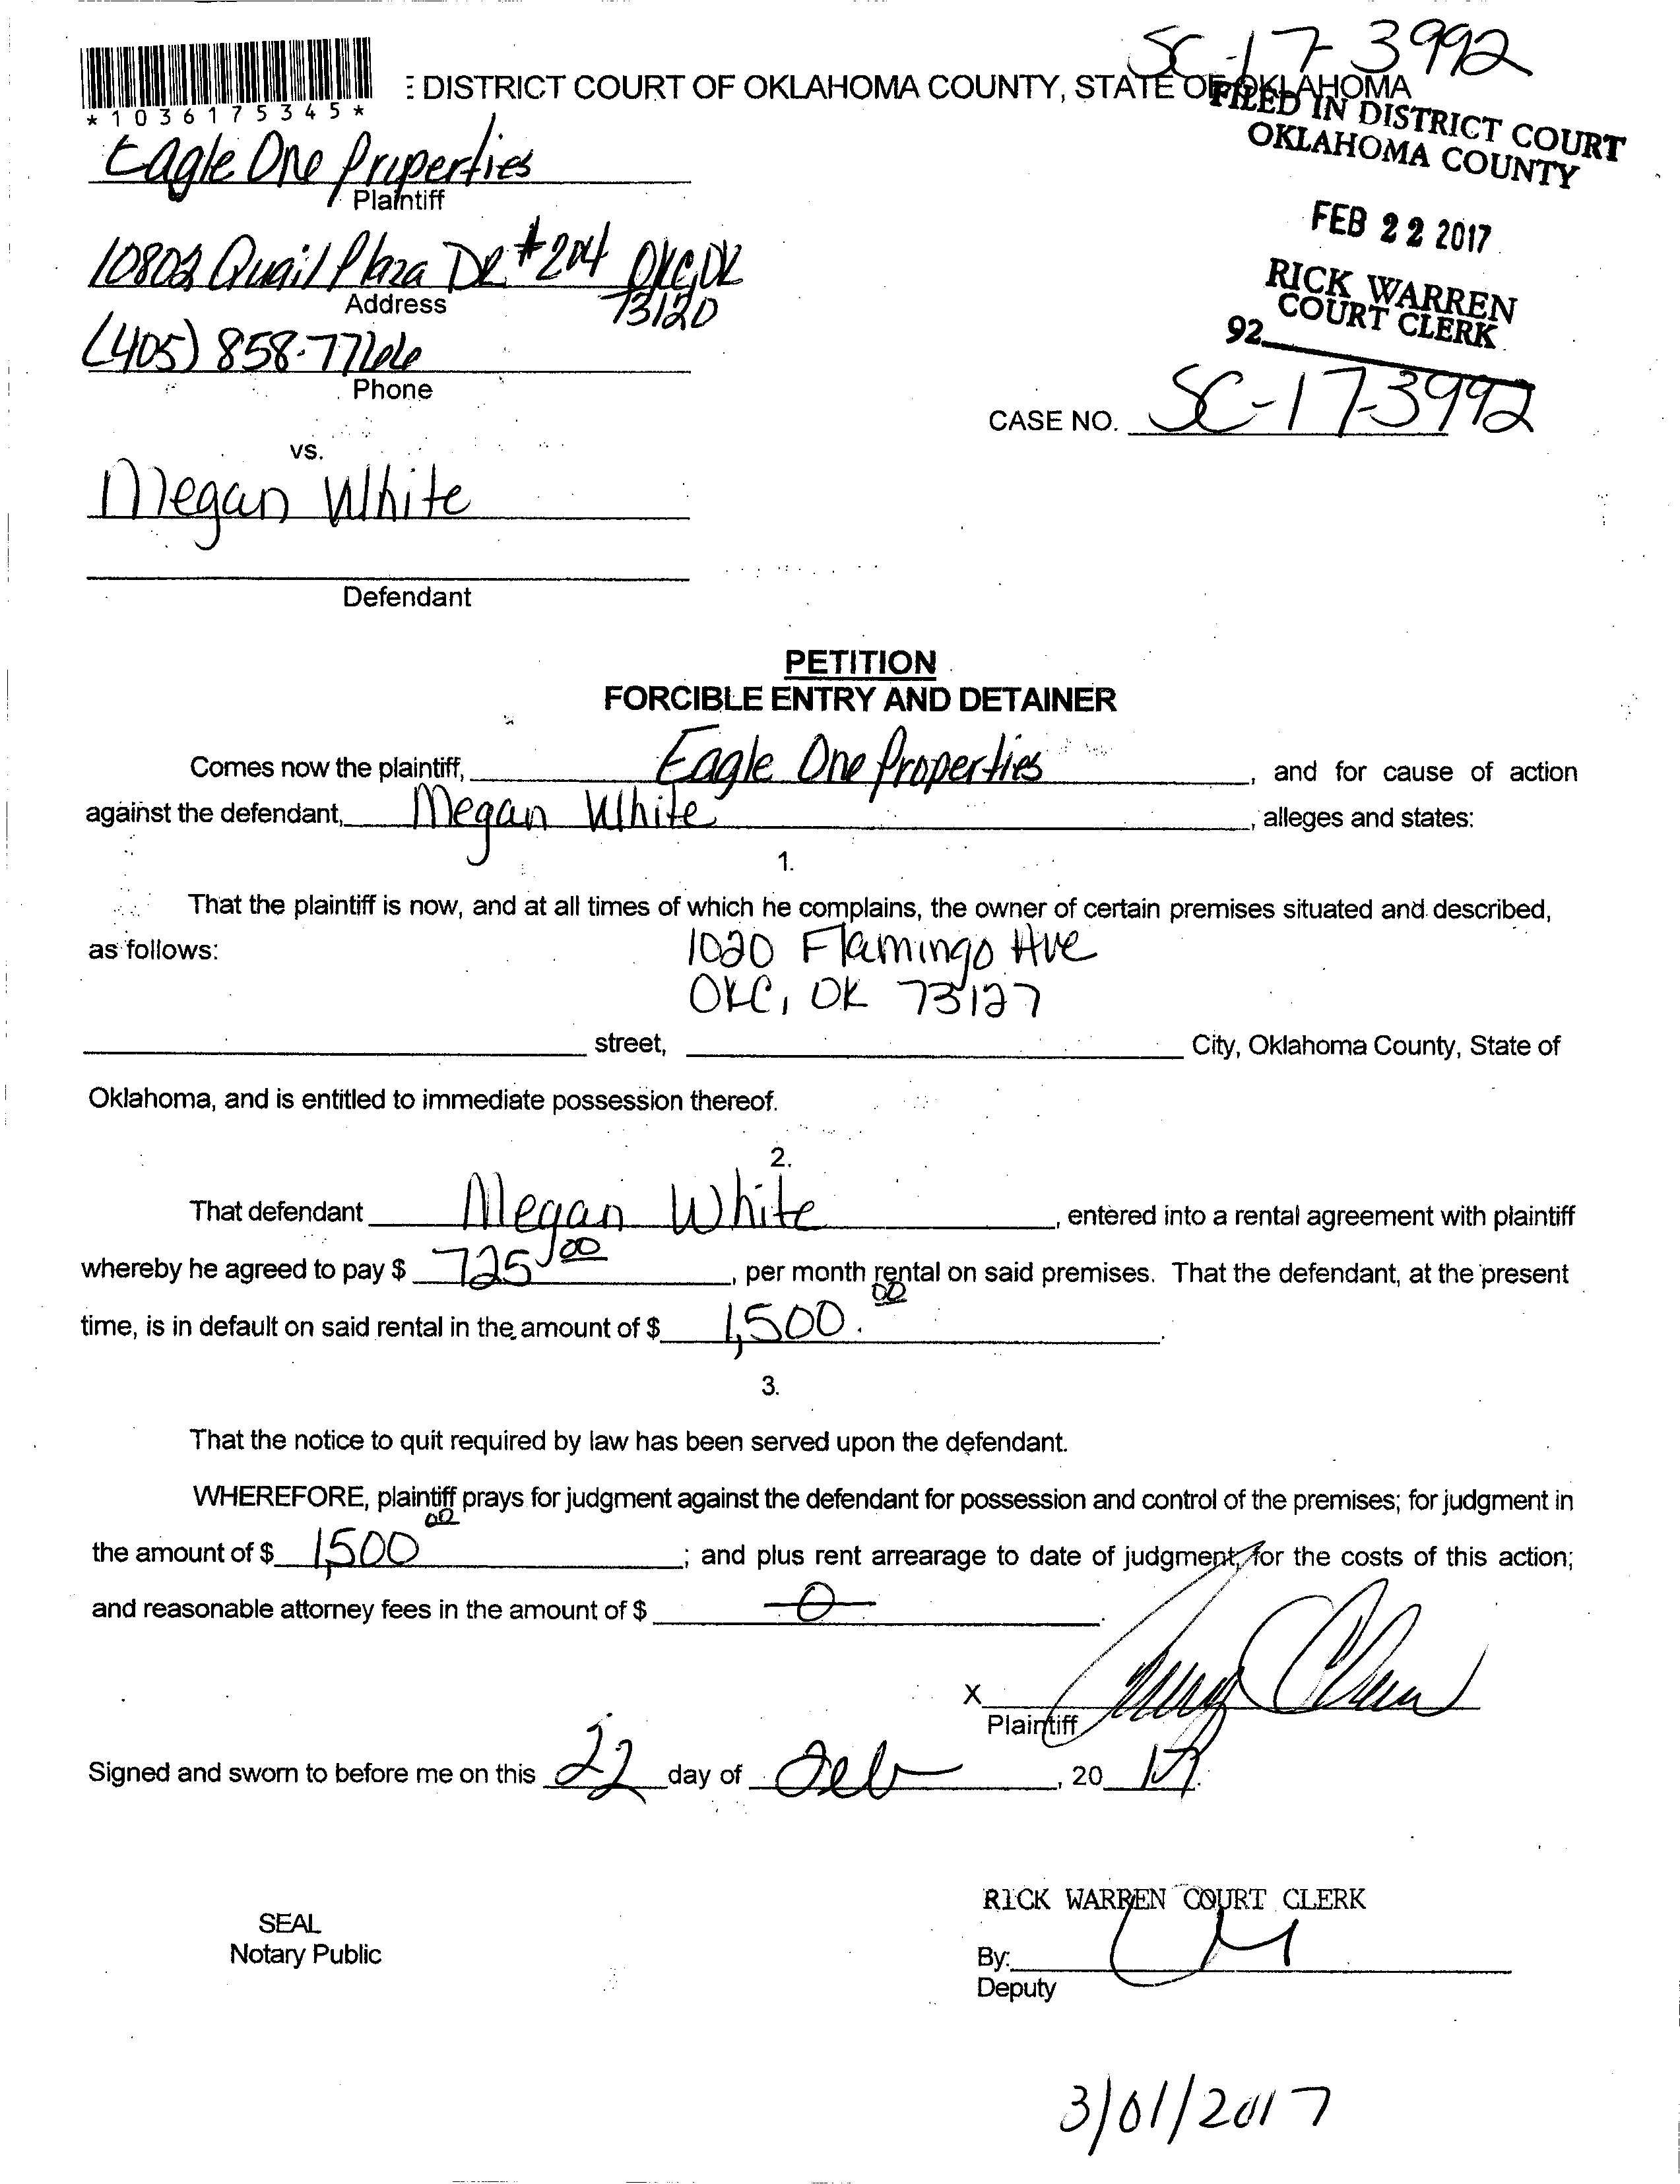 SC-17-3992
E DISTRICT COURT OF OKLAHOMA COUNTY, STATE OF OKLAHOMA
*1036175345*
FILED IN DISTRICT COURT
OKLAHOMA COUNTY
FEB 22 2017
RICK WARREN
COURT CLERK
92
Eagle One Properties
Plaintiff
10802 Quail Plaza DR #204 OKC, OK
73120
Address
(405) 858-7766
Phone
CASE NO. SC-17-3992
vs.
Megan White
Defendant
PETITION
FORCIBLE ENTRY AND DETAINER
Comes now the plaintiff, Eagle One Properties, and for cause of action
against the defendant, Megan White, alleges and states:
1.
That the plaintiff is now, and at all times of which he complains, the owner of certain premises situated and described,
as follows: 1020 Flamingo Ave
OKC, OK 73127
street, City, Oklahoma County, State of
Oklahoma, and is entitled to immediate possession thereof.
2.
That defendant Megan White, entered into a rental agreement with plaintiff
whereby he agreed to pay $ 725.00, per month rental on said premises. That the defendant, at the present
time, is in default on said rental in the amount of $ 1,500.00.
3.
That the notice to quit required by law has been served upon the defendant.
WHEREFORE, plaintiff prays for judgment against the defendant for possession and control of the premises; for judgment in
the amount of $ 1,500 00; and plus rent arrearage to date of judgment; for the costs of this action;
and reasonable attorney fees in the amount of $ 0.
X
Plaintiff
Signed and sworn to before me on this 22 day of Feb, 20 17.
RICK WARREN COURT CLERK
SEAL
Notary Public
By:
Deputy
3/01/2017